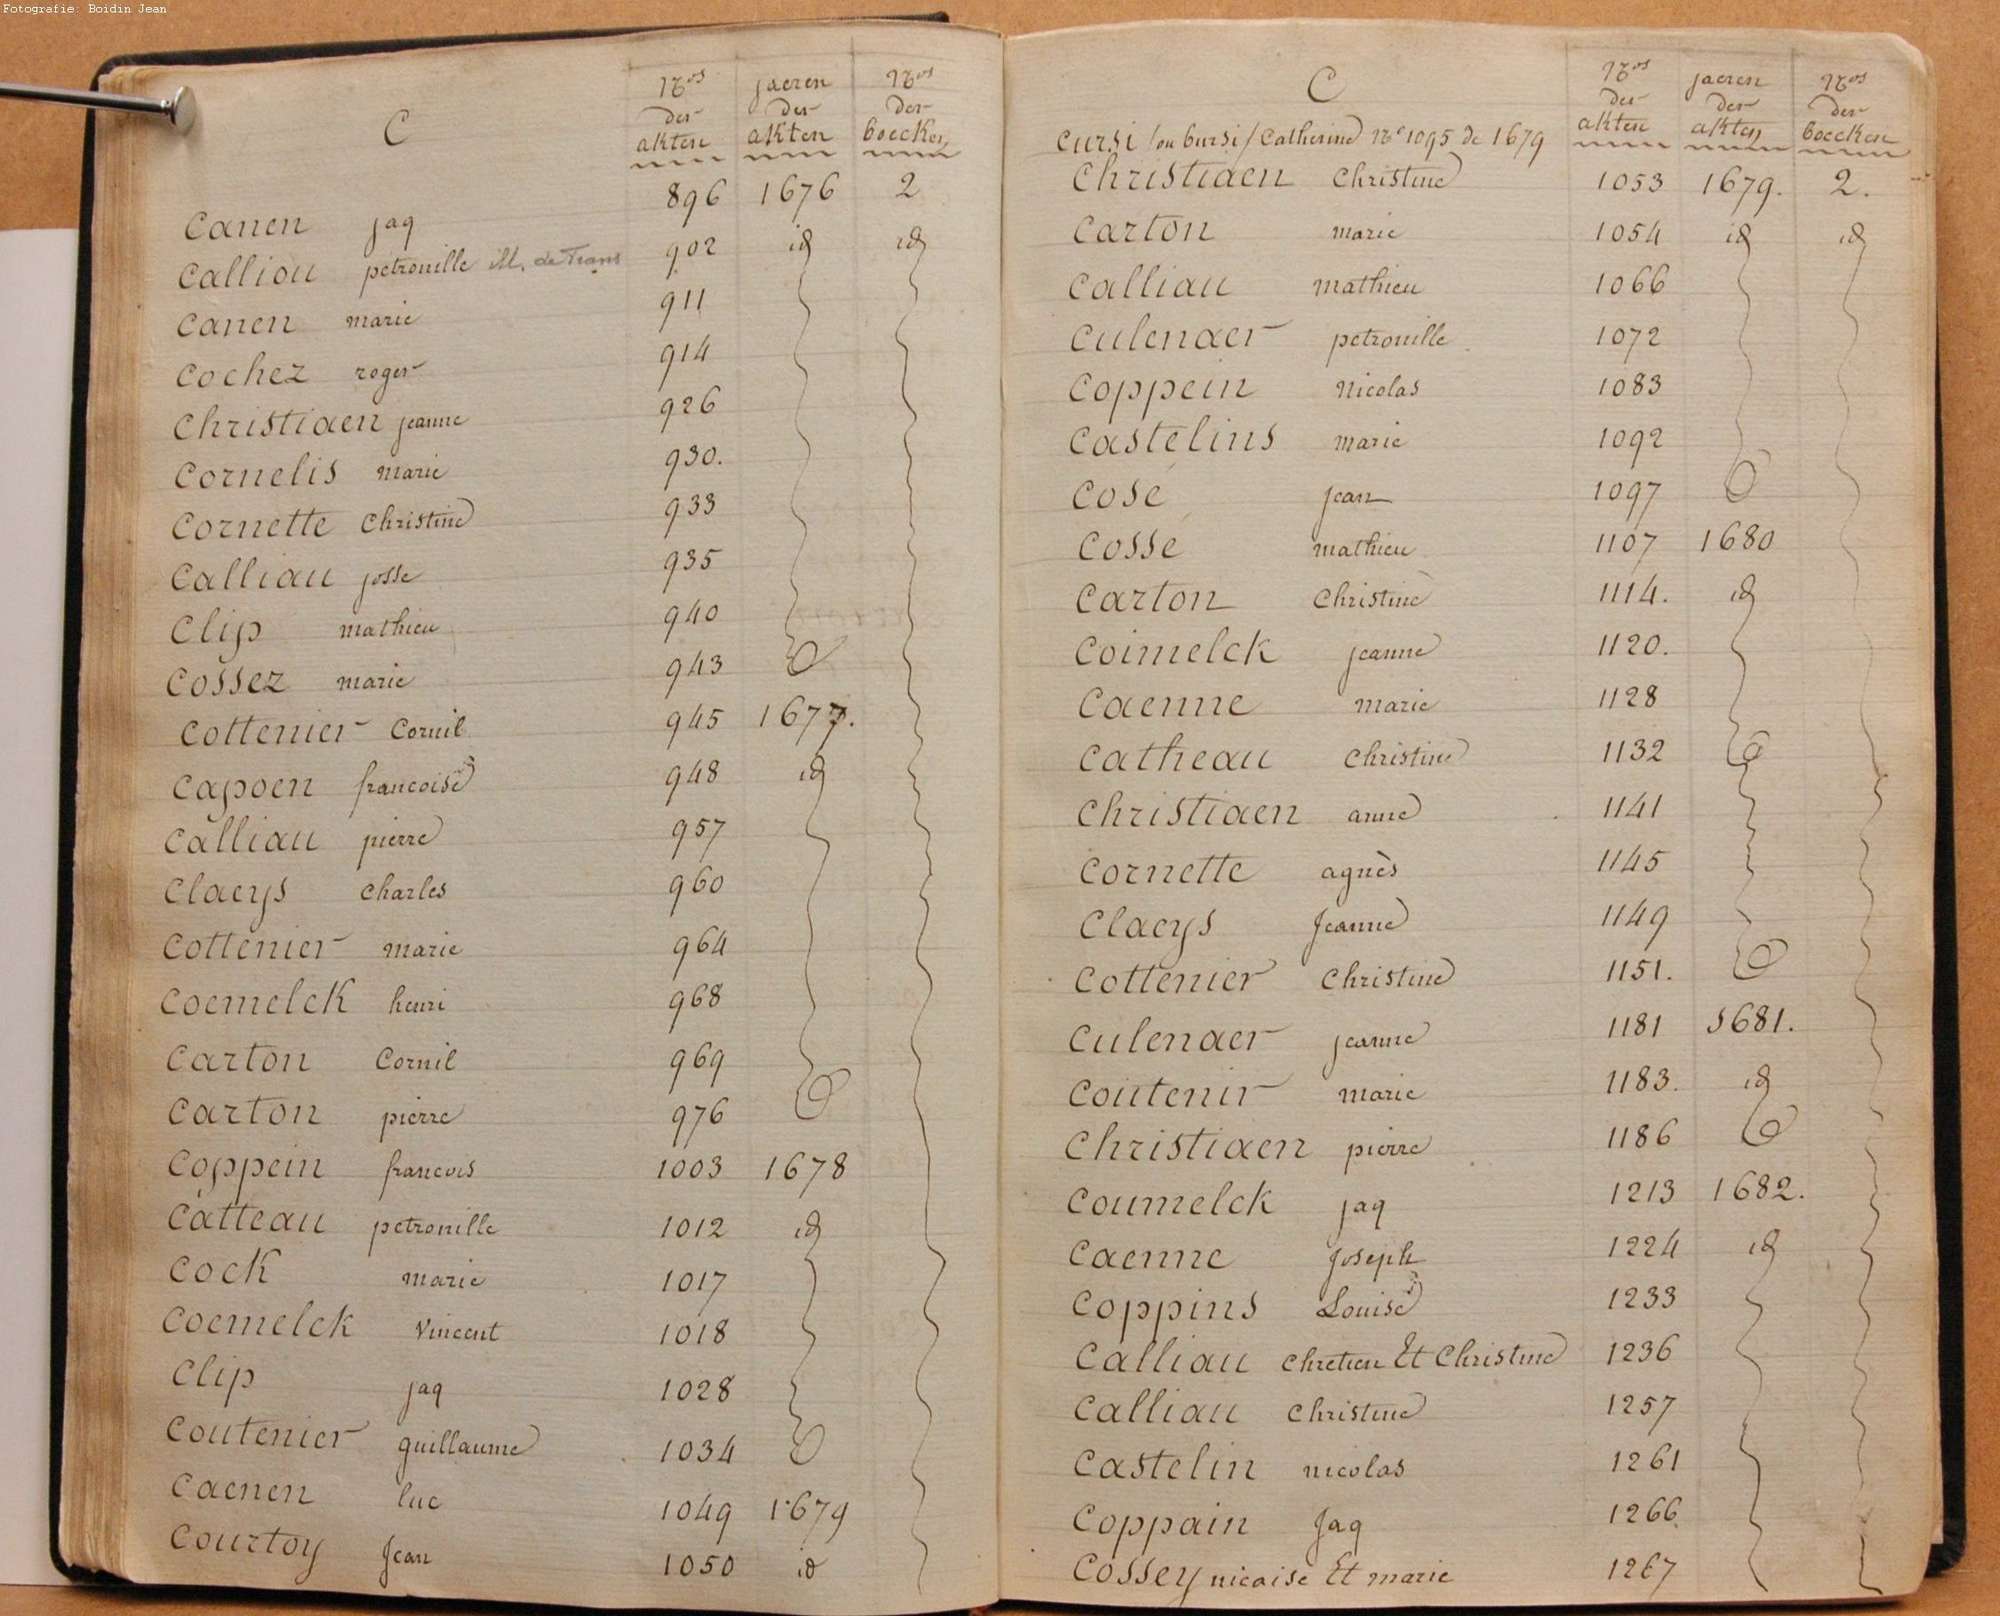 Fotografie: Boidin Jean
C
Nos der akten
jaeren der akten
Nos der boecken
Canen jaq 896 1676 2
Calliou petronille M. de Trans 902 id id
Canen marie 911
Cochez roger 914
Christiaen jeanne 926
Cornelis marie 930.
Cornette Christine 933
Calliau josse 935
Clip mathieu 940
Cossez marie 943
Cottenier Cornil 945 1677.
Capoen francoise 948 id
Calliau pierre 957
Claeys Charles 960
Cottenier marie 964
Coemelck henri 968
Carton Cornil 969
Carton pierre 976
Coppein francois 1003 1678
Catteau petronille 1012 id
Cock marie 1017
Coemelck Vincent 1018
Clip jaq 1028
Coutenier guillaume 1034
Caenen luc 1049 1679
Courtoy Jean 1050 id
C
Nos der akten
jaeren der akten
Nos der boecken
Cursi /ou bursi/ Catherine No 1095 de 1679
Christiaen Christine 1053 1679. 2.
Carton marie 1054 id id
Calliau mathieu 1066
Culenaer petronille 1072
Coppein Nicolas 1083
Castelins marie 1092
Cosé jean 1097
Cossé mathieu 1107 1680
Carton Christine 1114. id
Coimelck jeanne 1120.
Caenne marie 1128
Catheau Christine 1132
Christiaen anne 1141
Cornette agnès 1145
Claeys Jeanne 1149
Cottenier Christine 1151.
Culenaer jeanne 1181 1681.
Coutenir marie 1183. id
Christiaen pierre 1186
Coumelck jaq 1213 1682.
Caenne Joseph 1224 id
Coppins Louise 1233
Calliau Chretien Et Christine 1236
Calliau Christine 1257
Castelin nicolas 1261
Coppain Jaq 1266
Cossey nicaise Et marie 1267